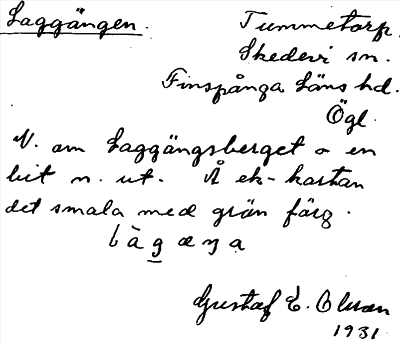 Laggängen.
Tummetorp.
Skedevi sn.
Finspånga Läns hd.
Ögl.
N. om Laggängsberget o en
bit n. ut. Å ek-kartan
det smala med grön färg.
Gustaf E. Olsson
1931